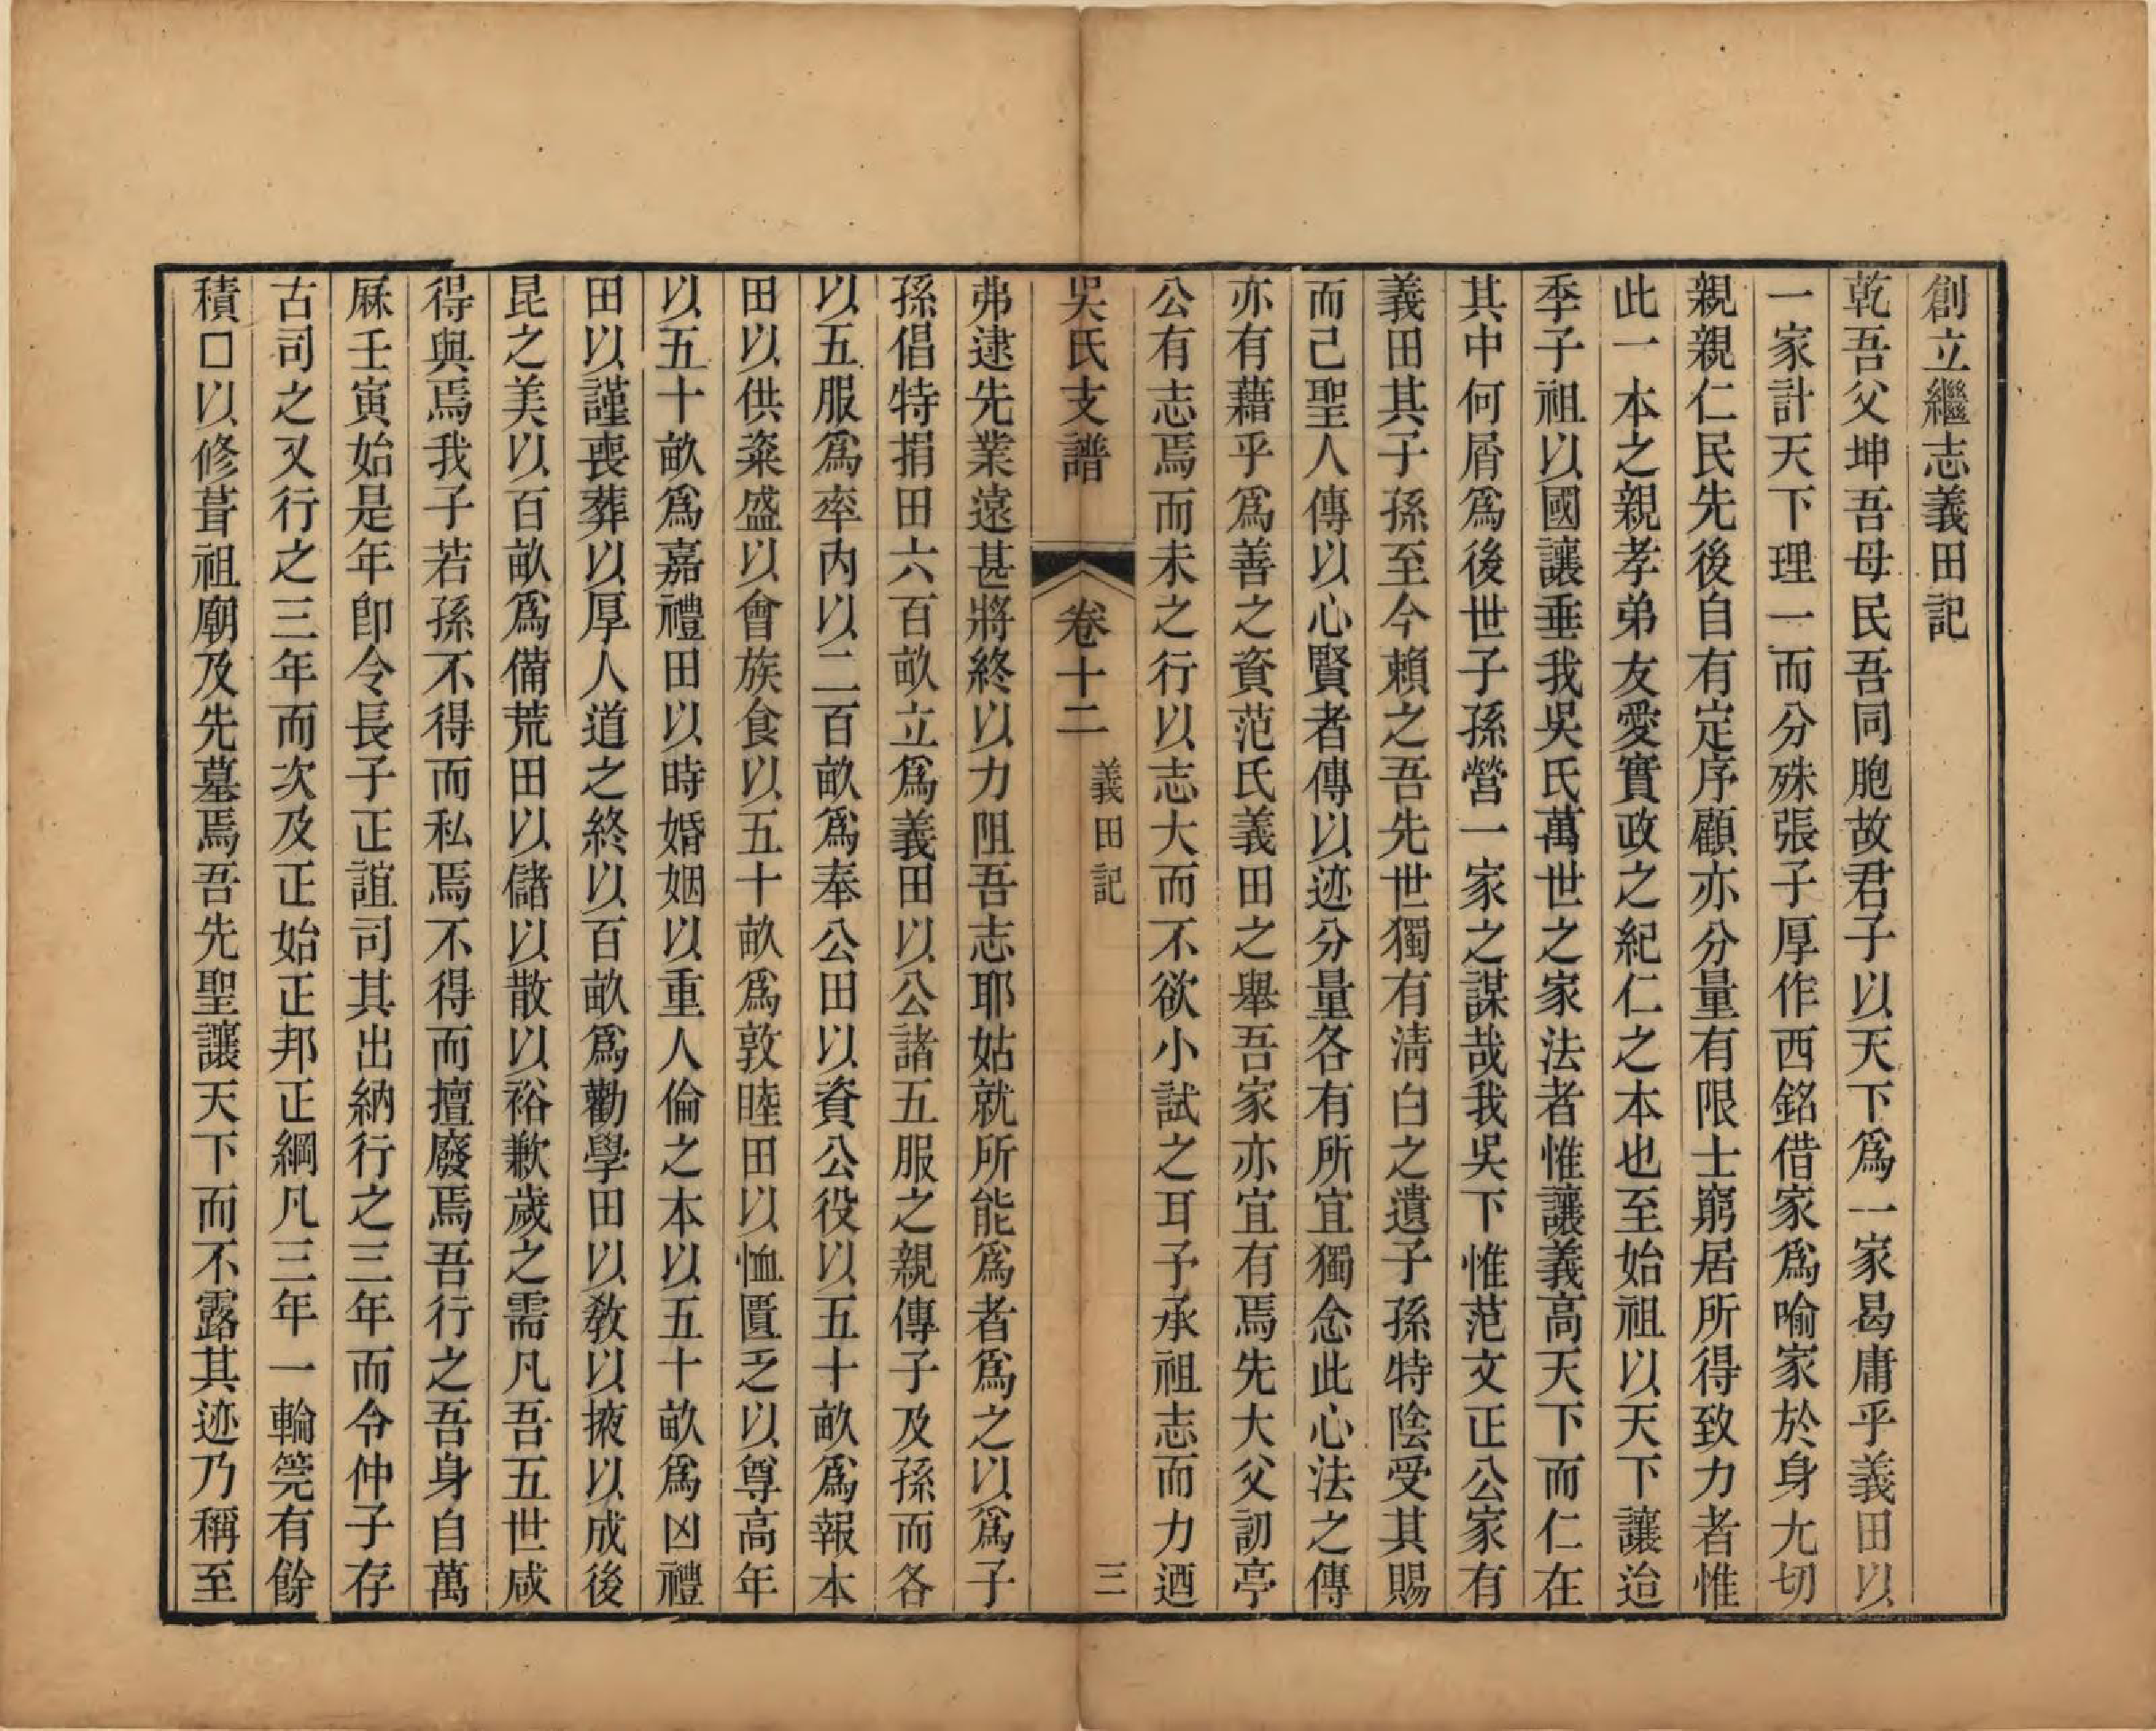 創立繼志義田記
乾吾父坤吾母民吾同胞故君子以天下爲一家曷庸乎義田以
一家計天下理一而分殊張子厚作西銘借家爲喻家於身尤切
親親仁民先後自有定序顧亦分量有限士窮居所得致力者惟
此一本之親孝弟友愛實政之紀仁之本也至始祖以天下讓迨
季子祖以國讓垂我吳氏萬世之家法者惟讓義高天下而仁在
其中何屑爲後世子孫營一家之謀哉我吳下惟范文正公家有
義田其子孫至今賴之吾先世獨有淸白之遺子孫特陰受其賜
而己聖人傳以心賢者傳以迹分量各有所宜獨念此心法之傳
亦有藉乎爲善之資范氏義田之舉吾家亦宜有焉先大父訒亭
公有志焉而未之行以志大而不欲小試之耳予承祖志而力迺
吳氏支譜
卷十二
義田記
三
弗逮先業遠甚將終以力阻吾志耶姑就所能爲者爲之以爲子
孫倡特捐田六百畝立爲義田以公諸五服之親傳子及孫而各
以五服爲率內以二百畝爲奉公田以資公役以五十畝爲報本
田以供粢盛以會族食以五十畝爲敦睦田以恤匱乏以尊高年
以五十畝爲嘉禮田以時婚姻以重人倫之本以五十畝爲凶禮
田以謹喪葬以厚人道之終以百畝爲勸學田以敎以掖以成後
昆之美以百畝爲備荒田以儲以散以裕歉歲之需凡吾五世咸
得與焉我子若孫不得而私焉不得而擅廢焉吾行之吾身自萬
厤壬寅始是年卽令長子正誼司其出納行之三年而令仲子存
古司之又行之三年而次及正始正邦正綱凡三年一輪筦有餘
積□以修葺祖廟及先墓焉吾先聖讓天下而不露其迹乃稱至